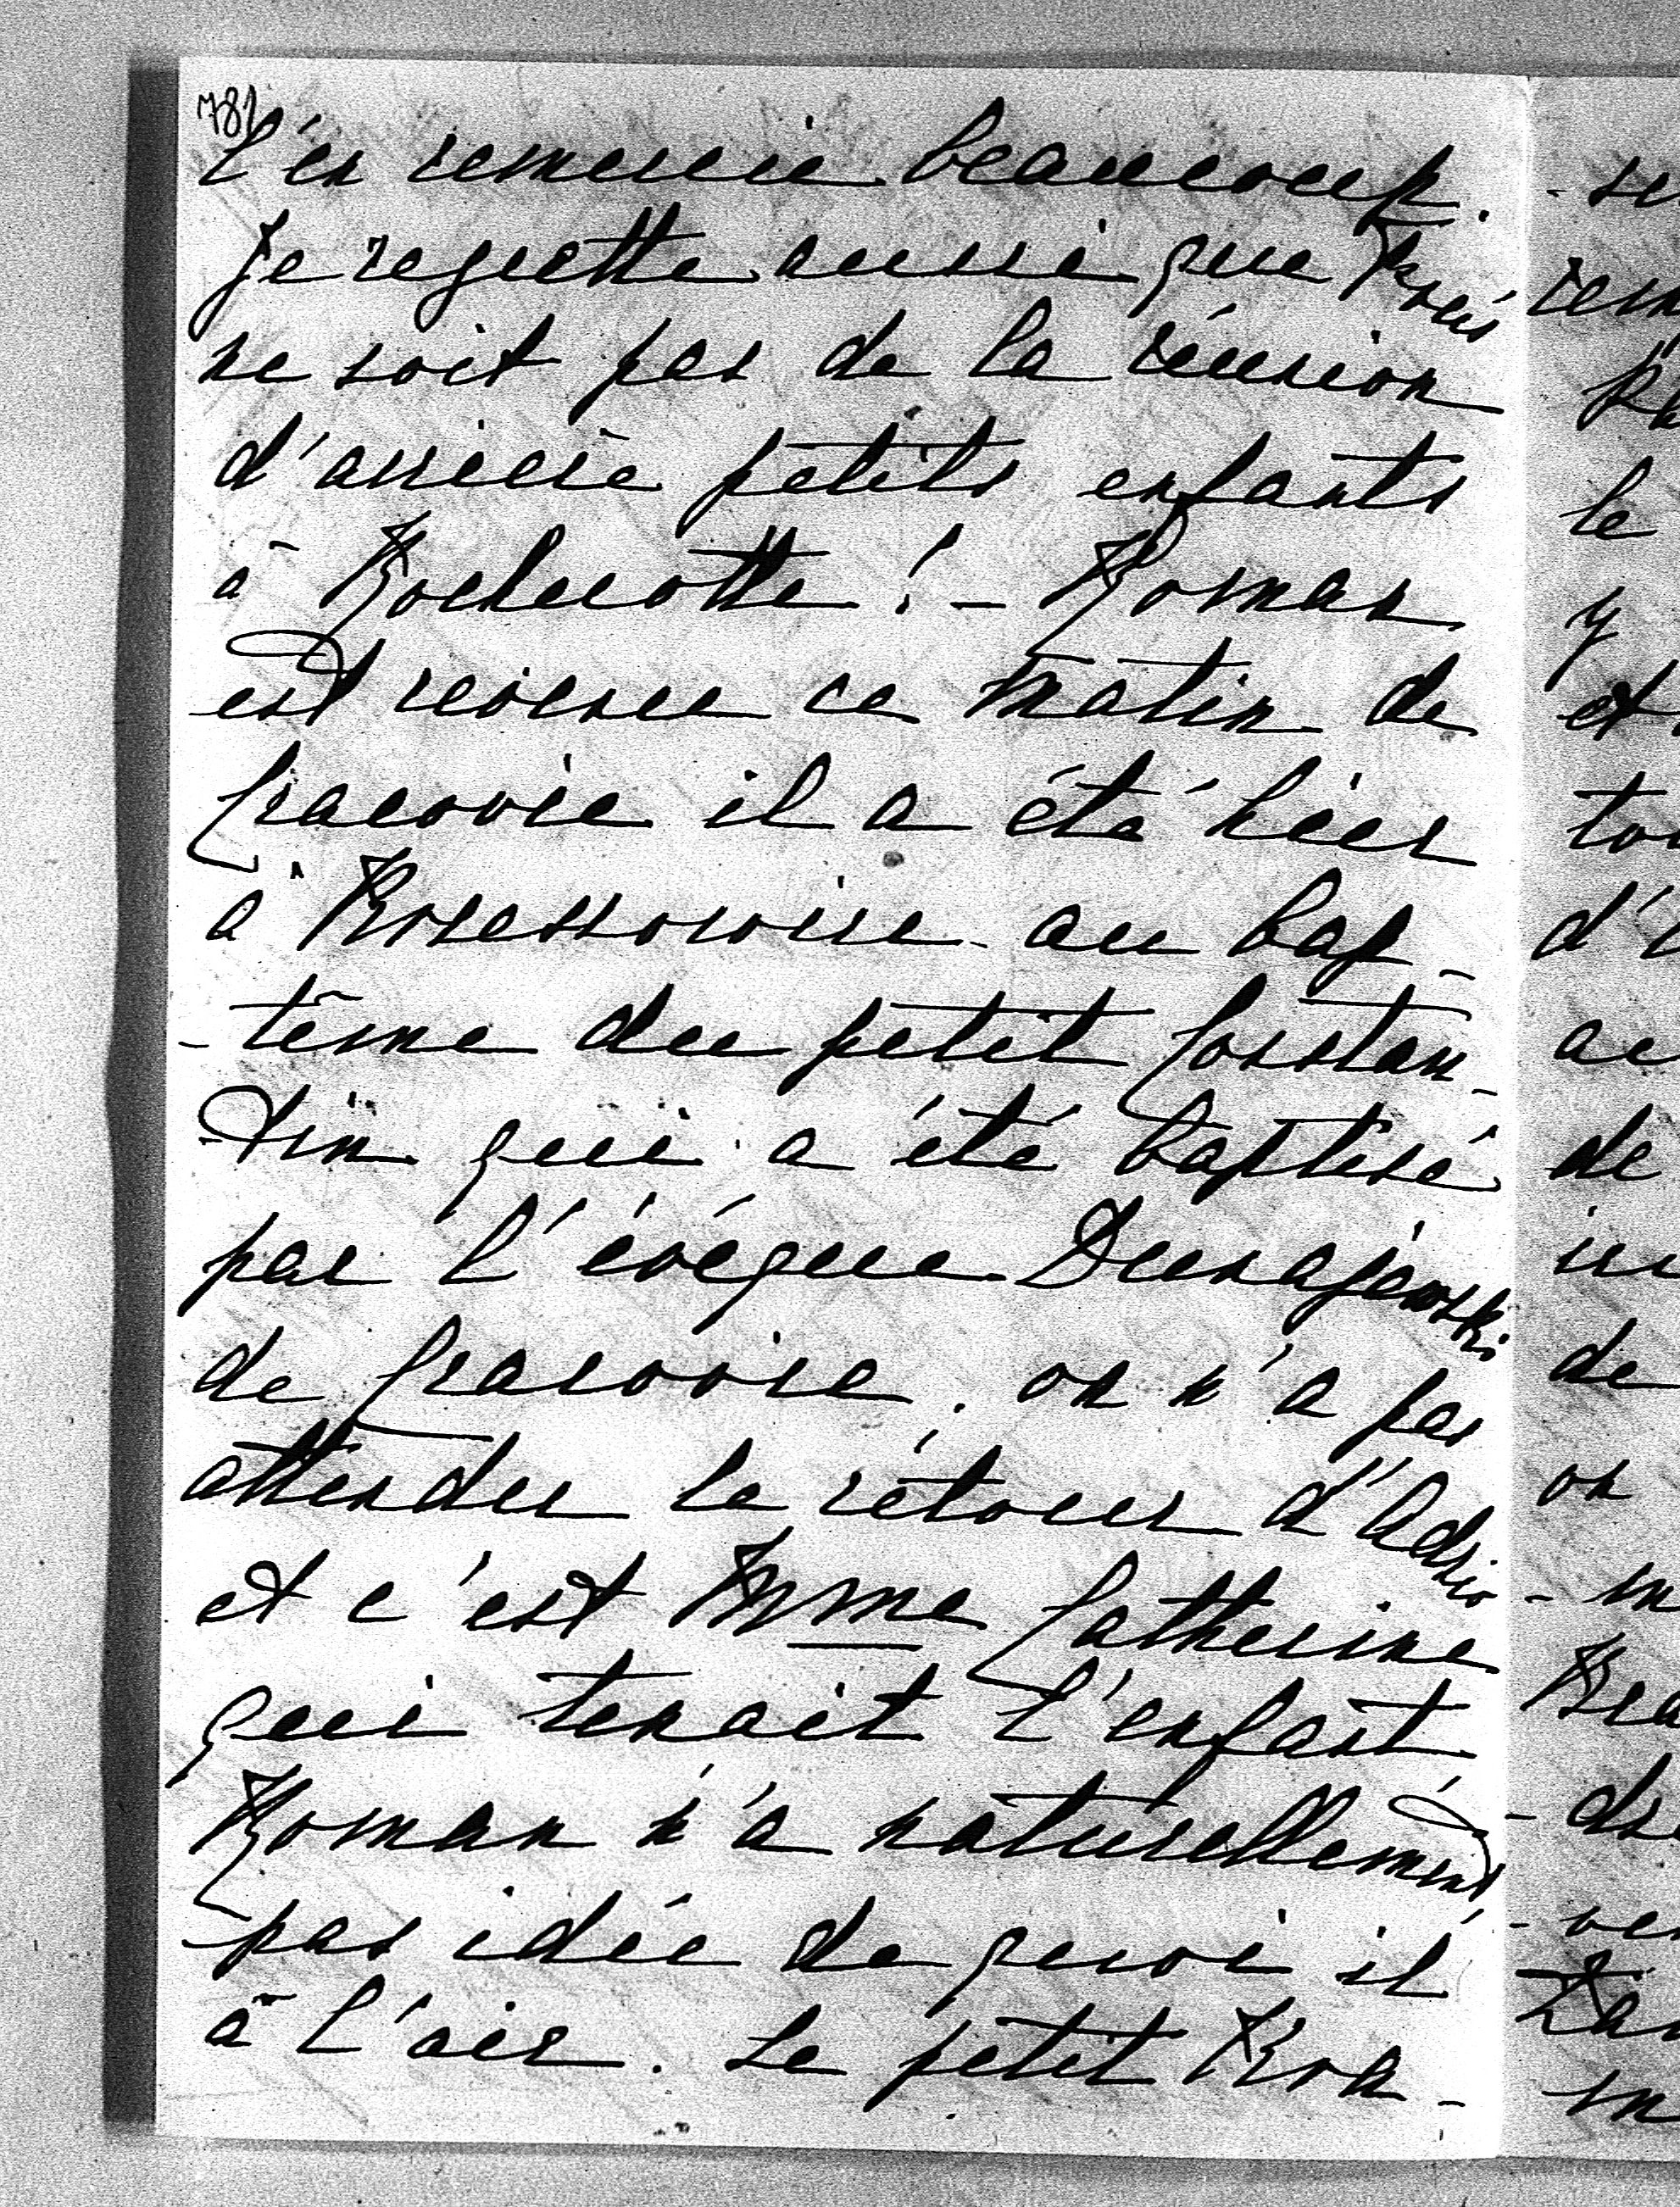 781
l'en remercie beaucoup.
Je regrette aussi que
ne soit pas de la réunion
d'arrière petits enfants
à Rochecotte! - Roman
est revenu ce matin de
Cracovie il a été hier
à Krzessowice au bap-
-tême du petit Constan-
-tin qui a été baptisé
par l'évêque Dunajewski
de Cracovie. on n'a pas
attendu le retour d'Adzio
et c'est Mme Catherine
qui tenait l'enfant
Roman n'a naturellement
pas idée de quoi il
à l'air. Le petit Kon-